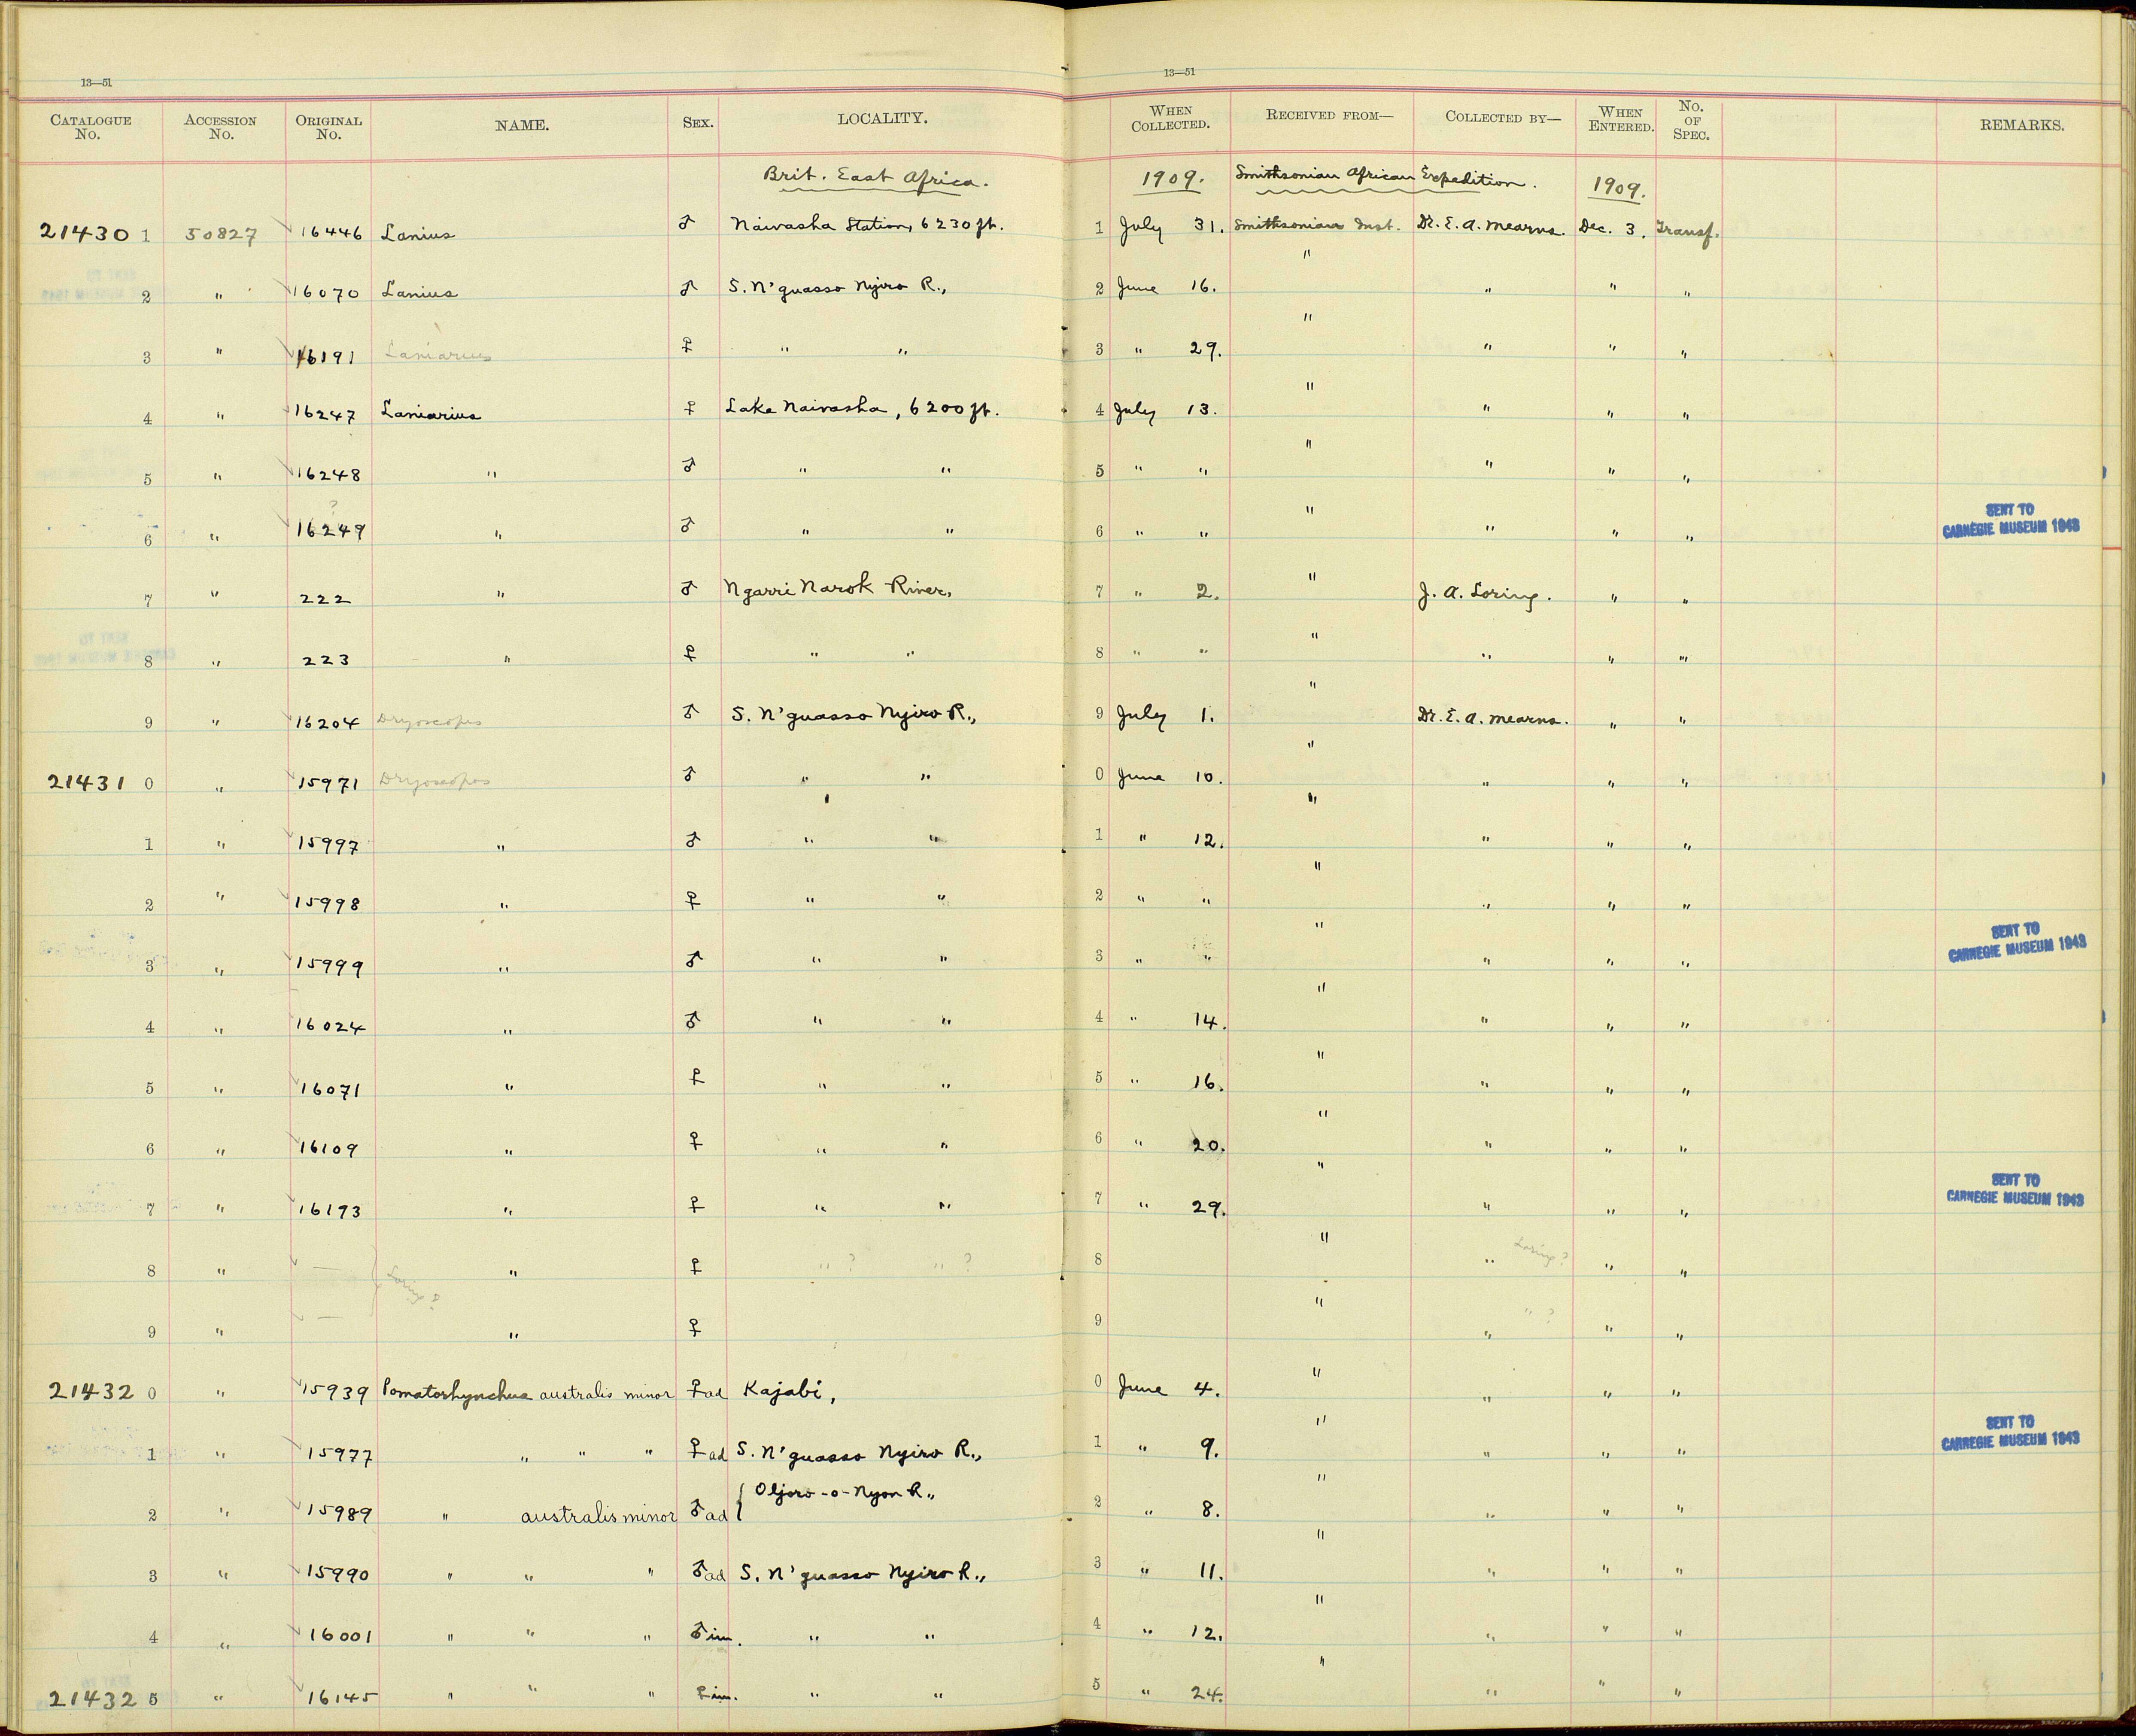 13—51
13—51
CATALOGUE No. ACCESSION No. ORIGINAL No. NAME. SEX. LOCALITY. WHEN COLLECTED. RECEIVED FROM— COLLECTED BY— WHEN ENTERED. No. OF SPEC. REMARKS.
Brit. East Africa. 1909. Smithsonian African Expedition. 1909.
21430 1 50827 16446 Lanius ♂ Naivasha Station, 6230 ft. 1 July 31. Smithsonian Inst. Dr. E. A. Mearns. Dec. 3. Transf.
2 " 16070 Lanius ♂ S. N'guasso Nyiro R., 2 June 16. " " " "
3 " 16191 Laniarius ♀ " " 3 " 29. " " " "
4 " 16247 Laniarius ♀ Lake Naivasha, 6200 ft. 4 July 13. " " " "
5 " 16248 " ♂ " " 5 " " " " " "
?
6 " 16249 " ♂ " " 6 " " " " " " SENT TO CARNEGIE MUSEUM 1943
7 " 222 " ♂ Ngarri Narok River, 7 " 2. " J. A. Loring. " "
8 " 223 " ♀ " " 8 " " " " " "
9 " 16204 Dryoscopus ♂ S. N'guasso Nyiro R., 9 July 1. " Dr. E. A. Mearns. " "
21431 0 " 15971 Dryoscopus ♂ " " 0 June 10. " " " "
1 " 15997 " ♂ " " 1 " 12. " " " "
2 " 15998 " ♀ " " 2 " " " " " "
3 " 15999 " ♂ " " 3 " " " " " " SENT TO CARNEGIE MUSEUM 1943
4 " 16024 " ♂ " " 4 " 14. " " " "
5 " 16071 " ♀ " " 5 " 16. " " " "
6 " 16109 " ♀ " " 6 " 20. " " " "
7 " 16193 " ♀ " " 7 " 29. " " " " SENT TO CARNEGIE MUSEUM 1943
8 " — Loring? " ♀ " ? " ? 8 " " Loring? " "
9 " — " ♀ 9 " " " ? " "
21432 0 " 15939 Pomatorhynchus australis minor ♀ ad Kajabi, 0 June 4. " " " "
1 " 15977 " " " ♀ ad S. N'guasso Nyiro R., 1 " 9. " " " " SENT TO CARNEGIE MUSEUM 1943
2 " 15989 " australis minor ♂ ad { Oljoro-o-Nyon R., 2 " 8. " " " "
3 " 15990 " " " ♂ ad S. N'guasso Nyiro R., 3 " 11. " " " "
4 " 16001 " " " ♂ im. " " 4 " 12. " " " "
21432 5 " 16145 " " " ♀ im. " " 5 " 24. " " " "